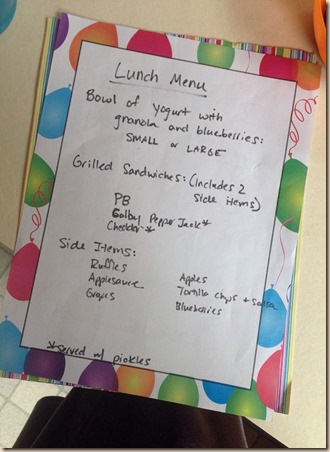 Lunch Menu
Bowl of Yogurt with
granola and blueberries:
SMALL or LARGE
Grilled Sandwiches: (Includes 2
side items)
PB
Colby Pepper Jack*
Cheddar *
Side Items:
Ruffles
Applesauce
Grapes
Apples
Tortilla Chips + Salsa
Blueberries
*served w/ pickles